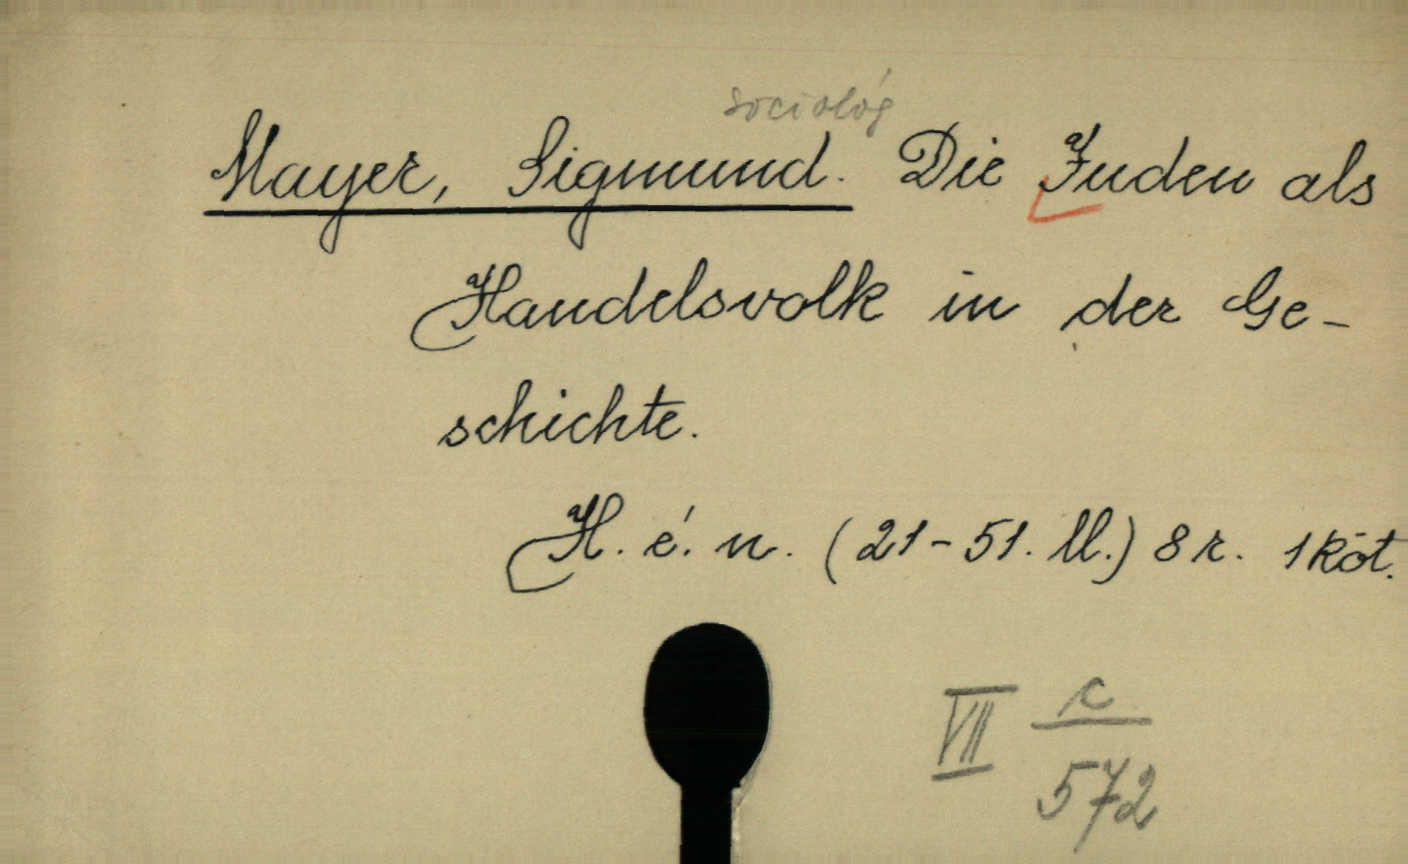 sociológ
Mayer, Sigmund. Die Juden als
Handelsvolk in der Ge-
schichte.
H. é. n. (21-51. ll.) 8 r. 1 köt.
VII c
572